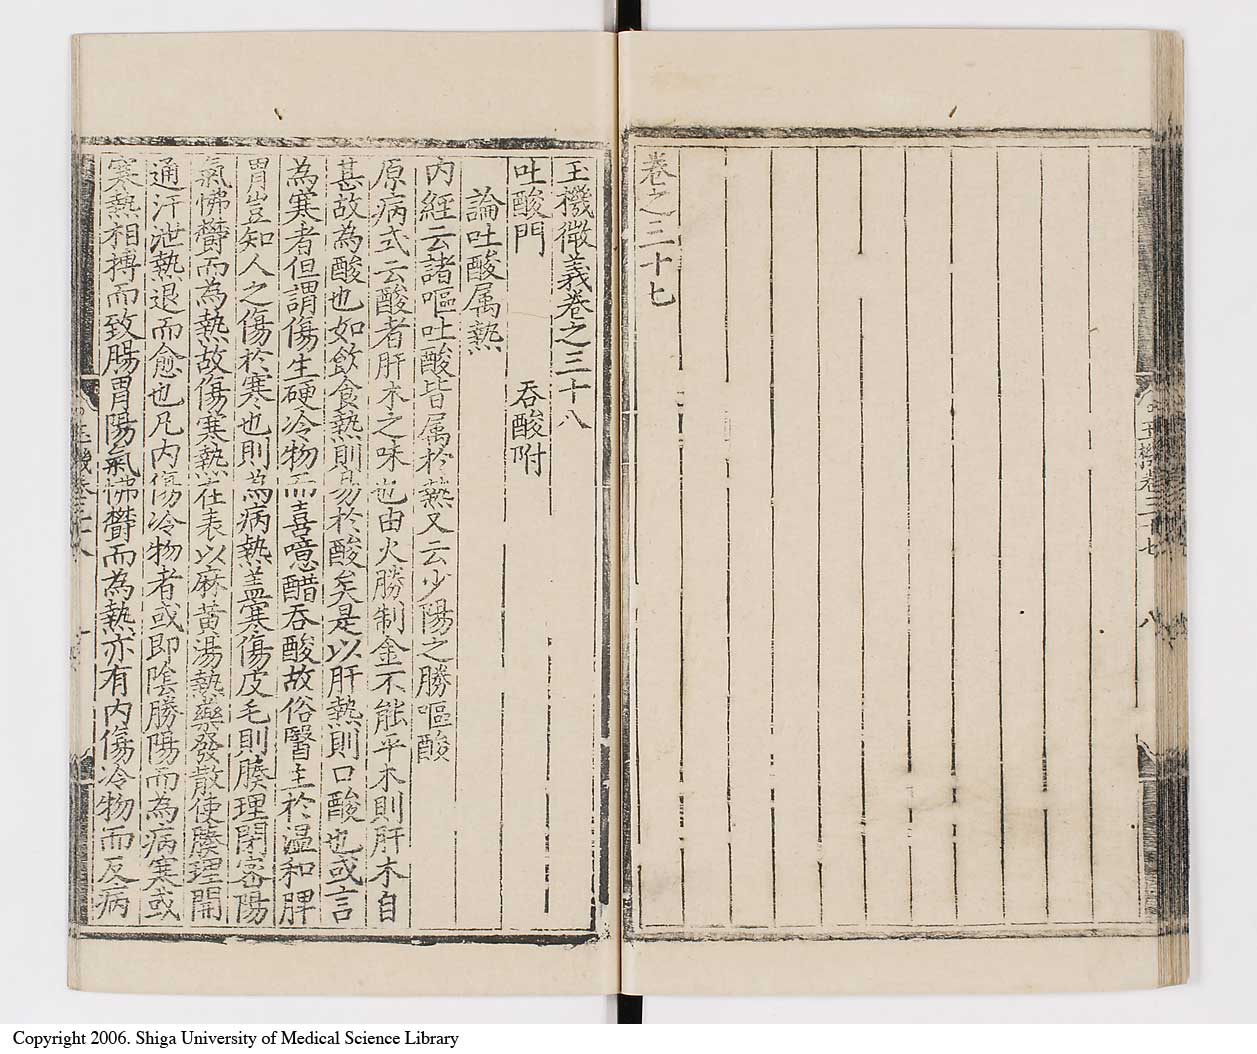 卷之三十七
玉機卷三十七 八
玉機微義卷之三十八
吐酸門 吞酸附
論吐酸属熱
内經云諸嘔吐酸皆属於熱又云少陽之勝嘔酸
原病式云酸者肝木之味也由火勝制金不能平木則肝木自
甚故為酸也如飲食熱則易於酸矣是以肝熱則口酸也或言
為寒者但謂傷生硬冷物而喜噫醋吞酸故俗醫主於温和脾
胃豈知人之傷於寒也則為病熱盖寒傷皮毛則腠理閉密陽
氣怫欎而為熱故傷寒熱在表以麻黄湯熱藥發散使腠理開
通汗泄熱退而愈也凡内傷冷物者或即陰勝陽而為病寒或
寒熱相搏而致腸胃陽氣怫欎而為熱亦有内傷冷物而反病
玉機卷三十八 一
Copyright 2006. Shiga University of Medical Science Library